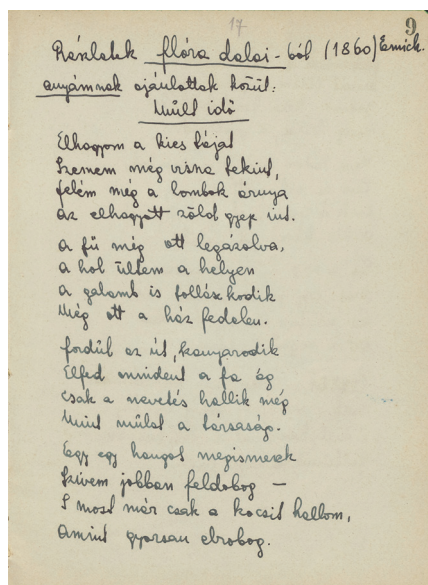 17
9
Részletek flóra dalai-ból (1860) Emich.
anyámnak ajánlottak közül:
Múlt idő
Elhagyom a kies tájat
Szemem még vissza tekint,
felém még a lombok árnya
az elhagyott zöld gyep int.
a fű még ott legázolva,
a hol ültem a helyen
a galamb is tollászkodik
Még ott a ház fedelen.
fordúl az út, kanyarodik
Elfed mindent a fa ág
Csak a nevetés hallik még
Mint múlat a társaság.
Egy egy hangot megismerek
Szivem jobban feldobog —
S most már csak a kocsit hallom,
amint gyorsan elrobog.